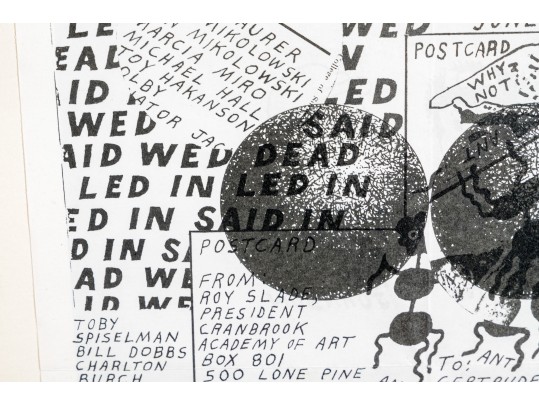 LE
EAL
AID
WED
AID WED DEAD
LED IN LED IN
ED IN SAID IN
D IN SA
AD WE
ID WE
AURER
MIKOLOWSKI
MIKOLOWSKI
MARCIA MIRO
MICHAEL HALL
TOY HAKANSON
OLBY
ATOR JAC
WED
LED
SAID
JUNE
POSTCARD
WHY?
NOT!
POSTCARD
FROM:
ROY SLADE,
PRESIDENT
CRANBROOK
ACADEMY OF ART
BOX 801
500 LONE PINE
TOBY
SPISELMAN
BILL DOBBS
CHARLTON
BURCH
TO: ANT
GERTRUDE